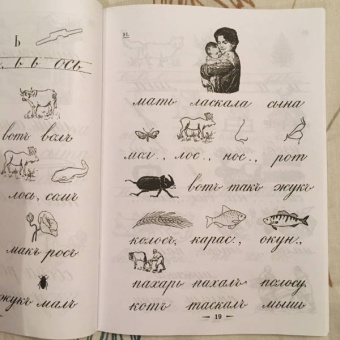 ь
ь ь ось
вотъ волъ
лось, сомъ
макъ росъ
жукъ малъ
21.
мать ласкала сына
мол.., лос., нос., рот
вотъ такъ жукъ
колосъ, карас., окун.,
пахарь пахалъ полосу
котъ таскалъ мышь
— 19 —